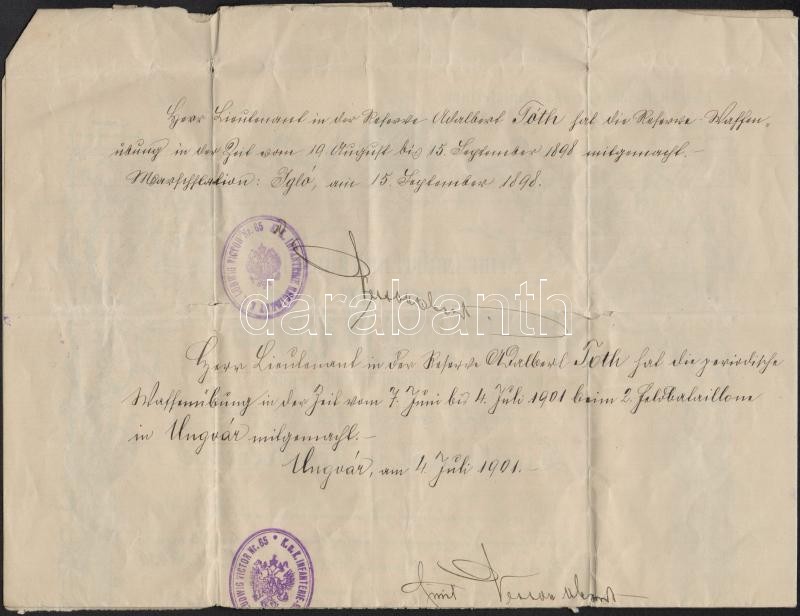 Herr Lieutenant in der Reserve Adalbert Tóth hat die Reserve-Waffen„
übung in der Zeit vom 19 August bis 15. September 1898 mitgemacht.-
Marschstation: Igló, am 15. September 1898.
LUDWIG VICTOR Nr. 65 K.u.K. INFANTERIE
darabanth
Herr Lieutenant in der Reserve Adalbert Tóth hat die periodische
Waffenübung in der Zeit vom 7. Juni bis 4. Juli 1901 beim 2. Feldbataillone
in Ungvár mitgemacht.-
Ungvár, am 4. Juli 1901.-
LUDWIG VICTOR Nr. 65 * K.u.K. INFANTERIE-